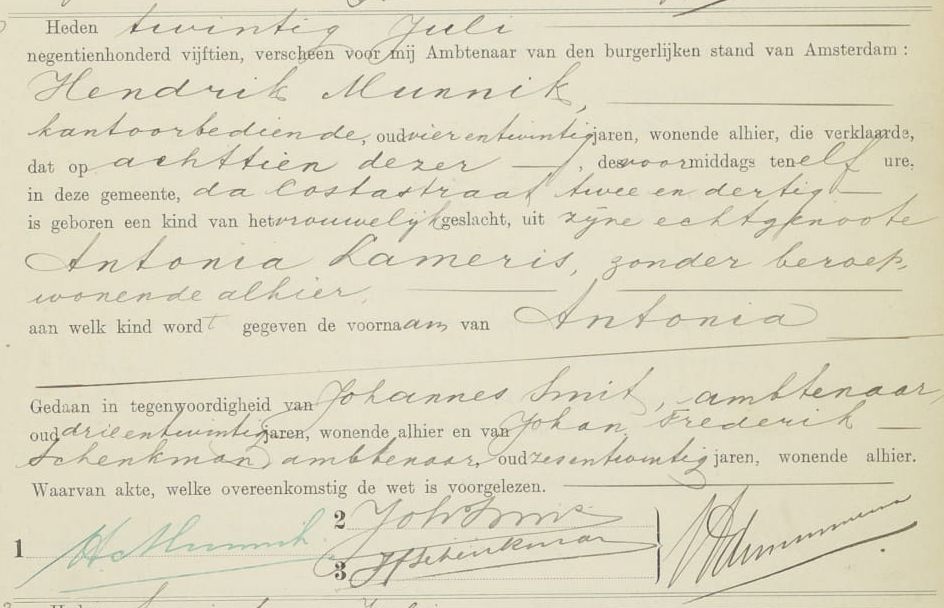 Heden twintig Juli
negentienhonderd vijftien, verscheen voor mij Ambtenaar van den burgerlijken stand van Amsterdam :
Hendrik Munnik,
kantoorbediende, oud vier en twintig jaren, wonende alhier, die verklaarde,
dat op achttien dezer, des voormiddags ten elf ure,
in deze gemeente, da Costastraat twee en dertig
is geboren een kind van het vrouwelijk geslacht, uit zijne echtgenoote
Antonia Lameris, zonder beroep,
wonende alhier,
aan welk kind wordt gegeven de voornaam van Antonia
Gedaan in tegenwoordigheid van Johannes Smit, ambtenaar,
oud drie en twintig jaren, wonende alhier en van Johan Frederik
Schenkman, ambtenaar, oud zes en twintig jaren, wonende alhier.
Waarvan akte, welke overeenkomstig de wet is voorgelezen.
1 H. Munnik
2 Joh Smit
3 JFSchenkman